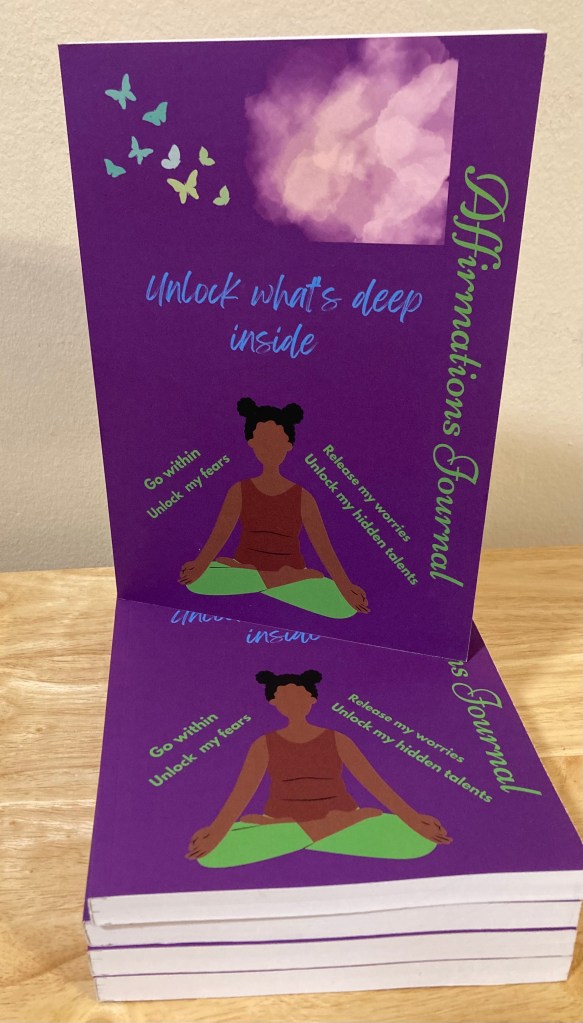 Affirmations Journal
Unlock what's deep
inside
Go within
Unlock my fears
Release my worries
Unlock my hidden talents
inside
ns Journal
Go within
Unlock my fears
Release my worries
Unlock my hidden talents